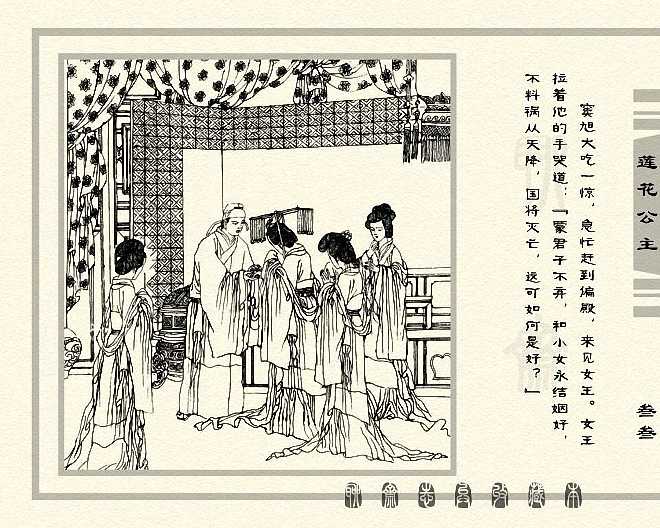 窦旭大吃一惊，急忙赶到偏殿，来见女王。女王
拉着他的手哭道：「蒙君子不弃，和小女永结姻好，
不料祸从天降，国将灭亡，这可如何是好？」
莲花公主
叁叁
聊斋志异
藏本